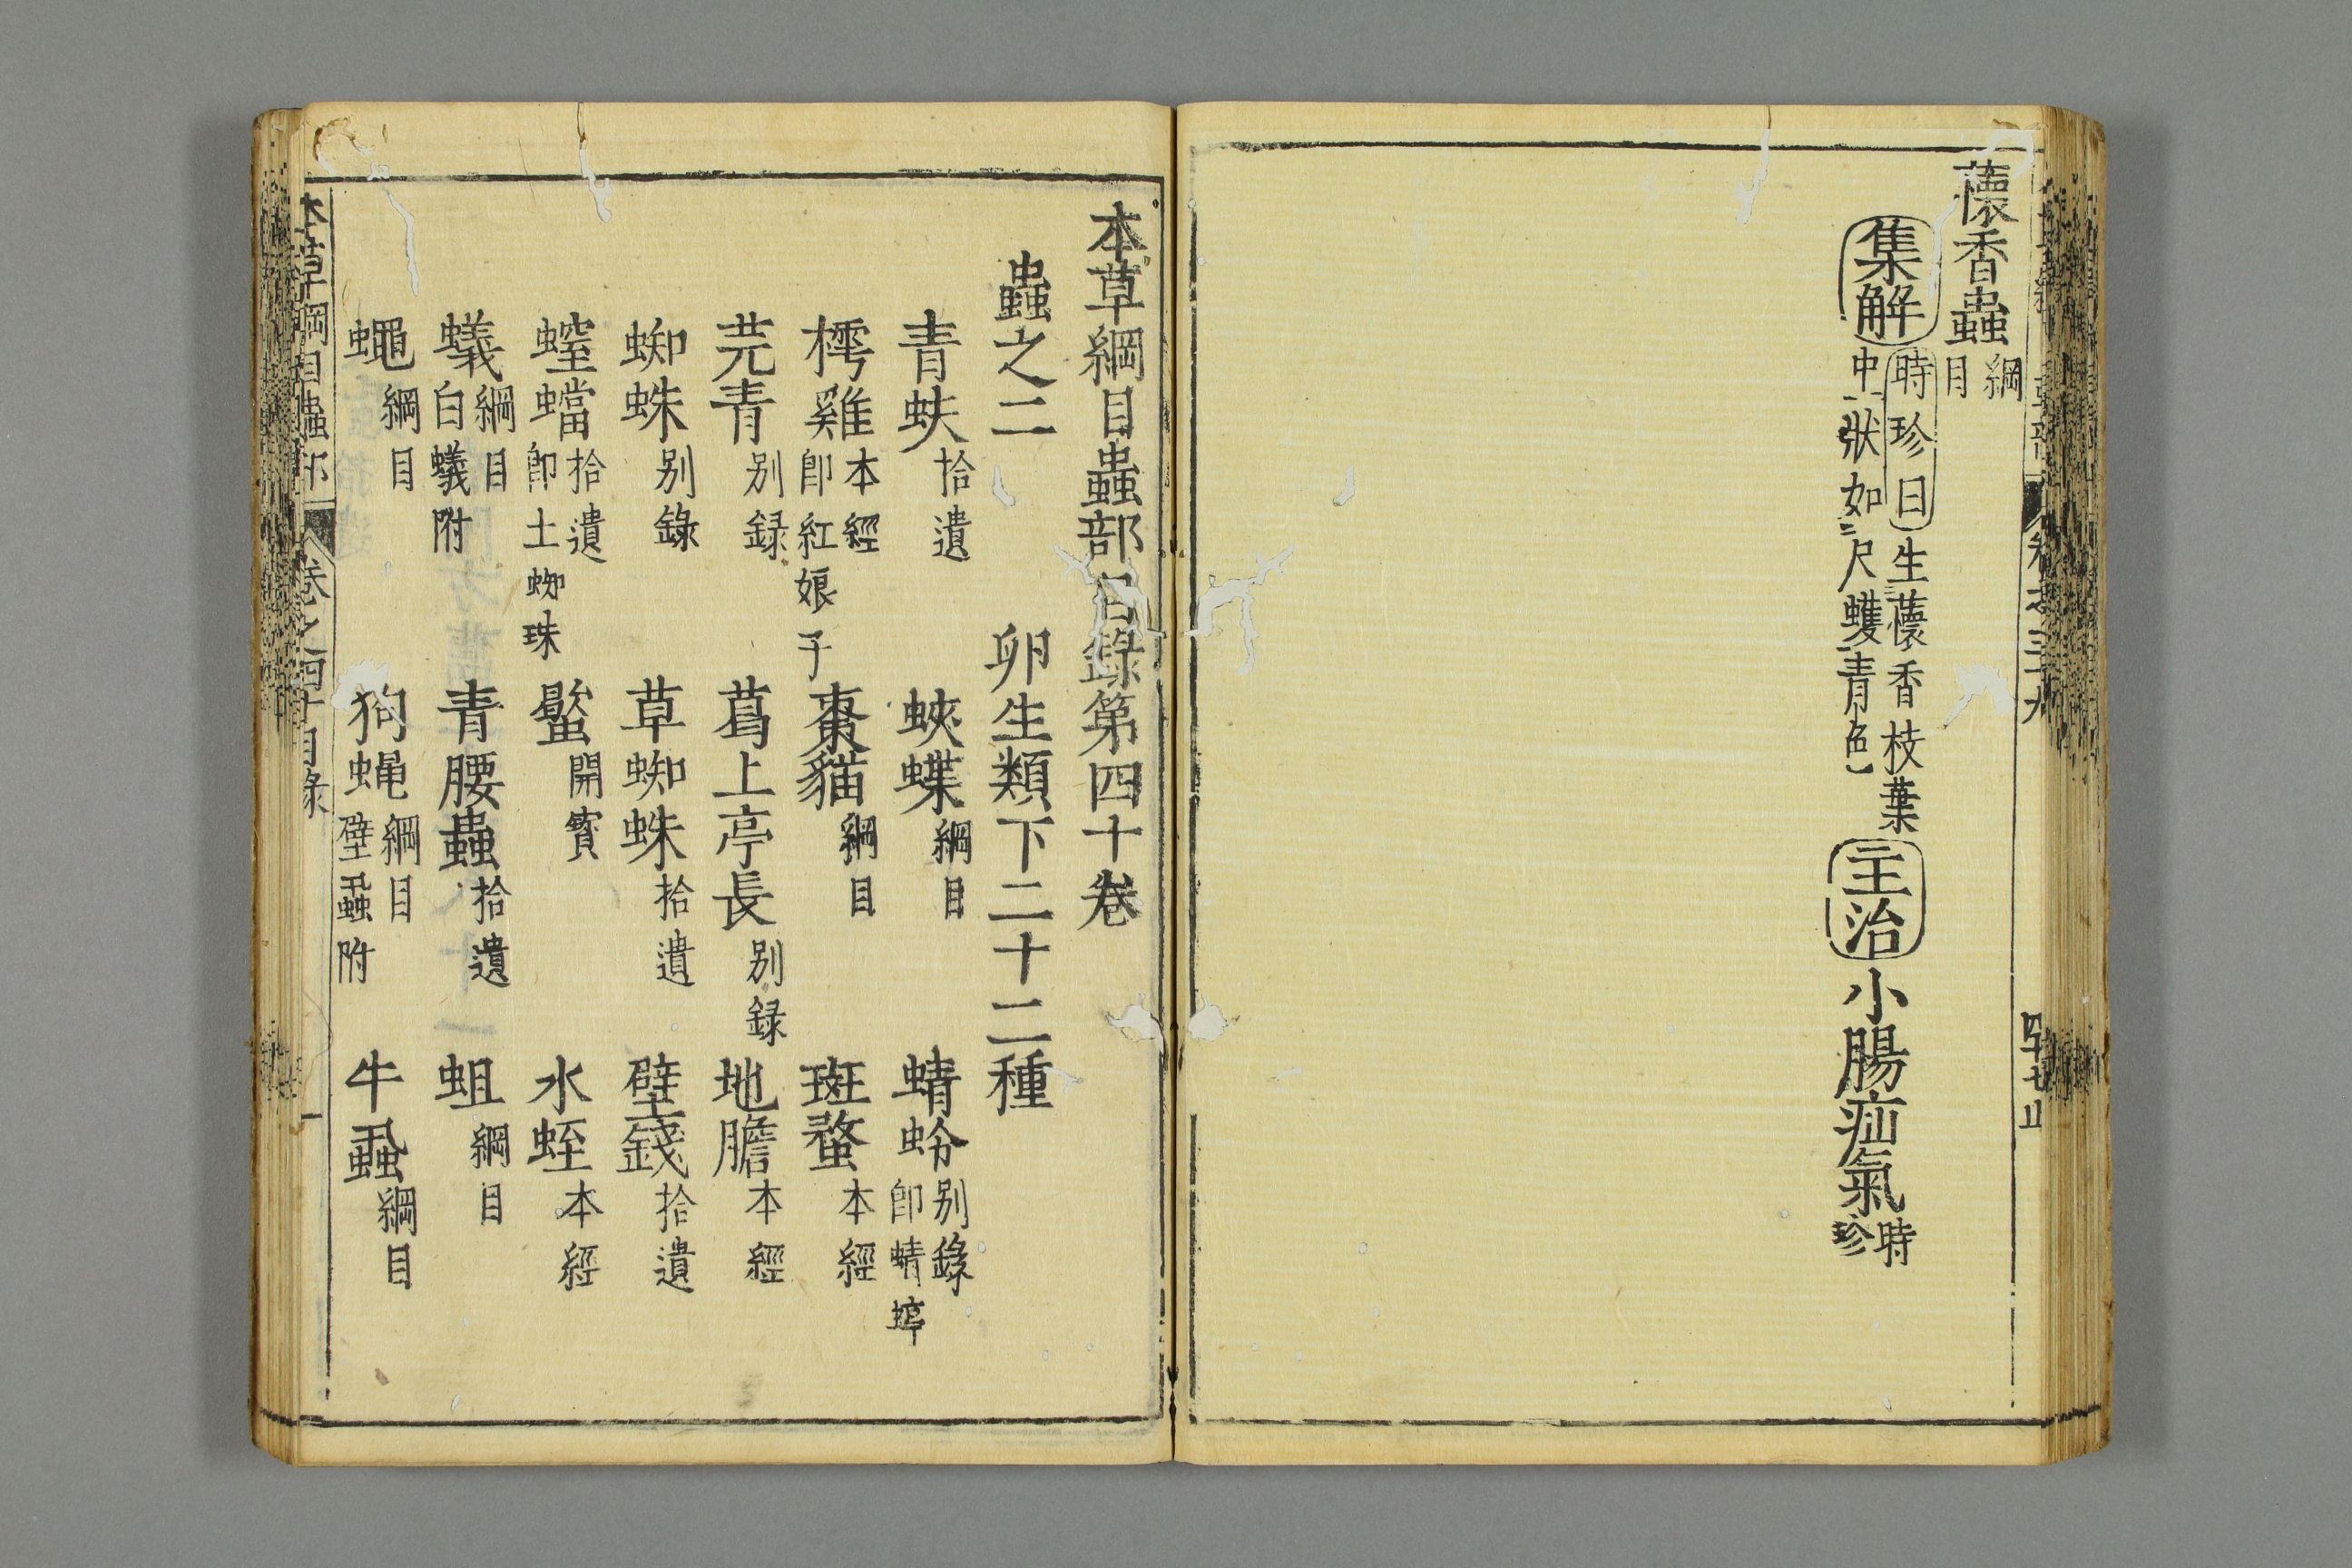 蘹香蟲綱目
集解時珍曰生蘹香枝葉
中狀如尺蠖青色
主治小腸疝氣時珍
卷之三十九
本草綱目蟲部目錄第四十卷
蟲之二 卵生類下二十二種
青蚨拾遺 蛺蝶綱目 蜻蛉别錄即蜻䗁
樗雞本經即紅娘子 棗貓綱目 斑蝥本經
芫青别録 葛上亭長别録 地膽本經
蜘蛛别錄 草蜘蛛拾遺 壁錢拾遺
螲蟷拾遺即土蜘珠 䘉開寳 水蛭本經
蟻綱目白蟻附 青腰蟲拾遺 蛆綱目
蠅綱目 狗蠅綱目壁蝨附 牛蝨綱目
本草綱目蟲部 卷之四十目錄 一